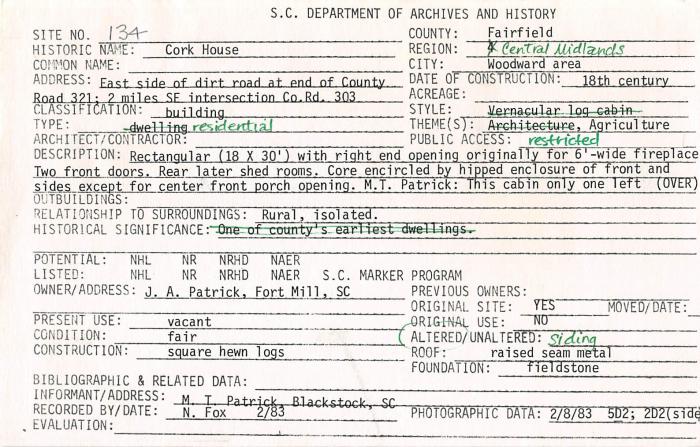 S.C. DEPARTMENT OF ARCHIVES AND HISTORY
SITE NO. 134
COUNTY: Fairfield
HISTORIC NAME: Cork House
REGION: X Central Midlands
COMMON NAME:
CITY: Woodward area
ADDRESS: East side of dirt road at end of County
DATE OF CONSTRUCTION: 18th century
Road 321; 2 miles SE intersection Co.Rd. 303
ACREAGE:
CLASSIFICATION: building
STYLE: Vernacular log cabin
TYPE: dwelling residential
THEME(S): Architecture, Agriculture
ARCHITECT/CONTRACTOR:
PUBLIC ACCESS: restricted
DESCRIPTION: Rectangular (18 X 30') with right end opening originally for 6'-wide fireplace
Two front doors. Rear later shed rooms. Core encircled by hipped enclosure of front and
sides except for center front porch opening. M.T. Patrick: This cabin only one left (OVER)
OUTBUILDINGS:
RELATIONSHIP TO SURROUNDINGS: Rural, isolated.
HISTORICAL SIGNIFICANCE: One of county's earliest dwellings.
POTENTIAL: NHL NR NRHD NAER
LISTED: NHL NR NRHD NAER S.C. MARKER PROGRAM
OWNER/ADDRESS: J. A. Patrick, Fort Mill, SC
PREVIOUS OWNERS:
ORIGINAL SITE: YES MOVED/DATE:
PRESENT USE: vacant
ORIGINAL USE: NO
CONDITION: fair
(ALTERED/UNALTERED: siding
CONSTRUCTION: square hewn logs
ROOF: raised seam metal
FOUNDATION: fieldstone
BIBLIOGRAPHIC & RELATED DATA:
INFORMANT/ADDRESS: M. T. Patrick, Blackstock, SC
RECORDED BY/DATE: N. Fox 2/83
PHOTOGRAPHIC DATA: 2/8/83 5D2; 2D2(side
EVALUATION: